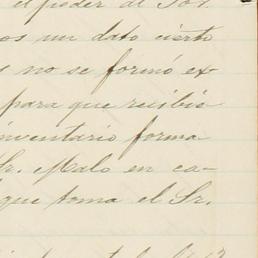 el poder al Sor.
os un dato cierto
s no se formó ex
para que recibió
inventario forma
Sr. Malo en ca-
que toma el Sr.